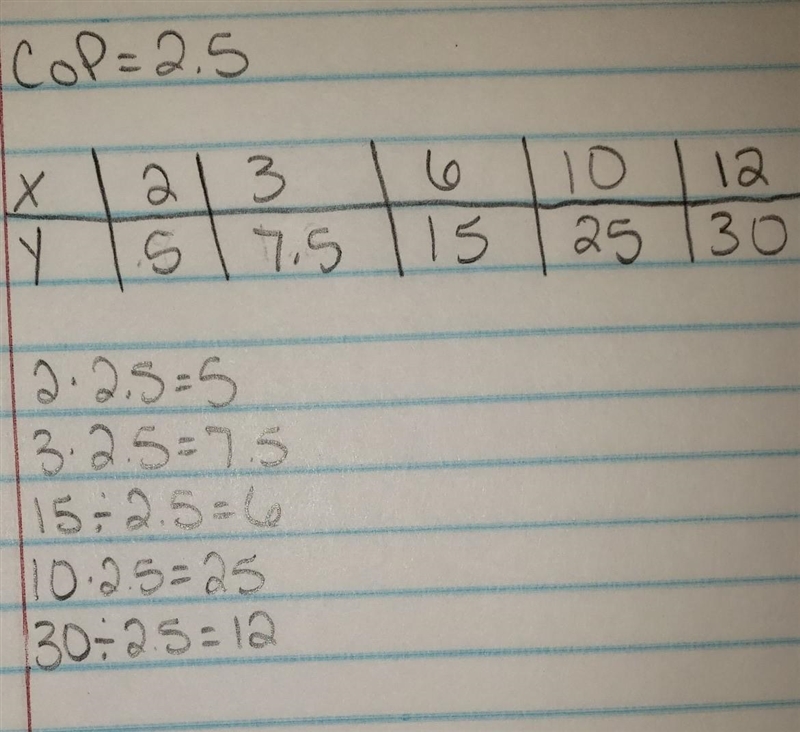 CoP=2.5
X | 2 | 3 | 6 | 10 | 12
Y | 5 | 7.5 | 15 | 25 | 30
2·2.5=5
3·2.5=7.5
15÷2.5=6
10·2.5=25
30÷2.5=12